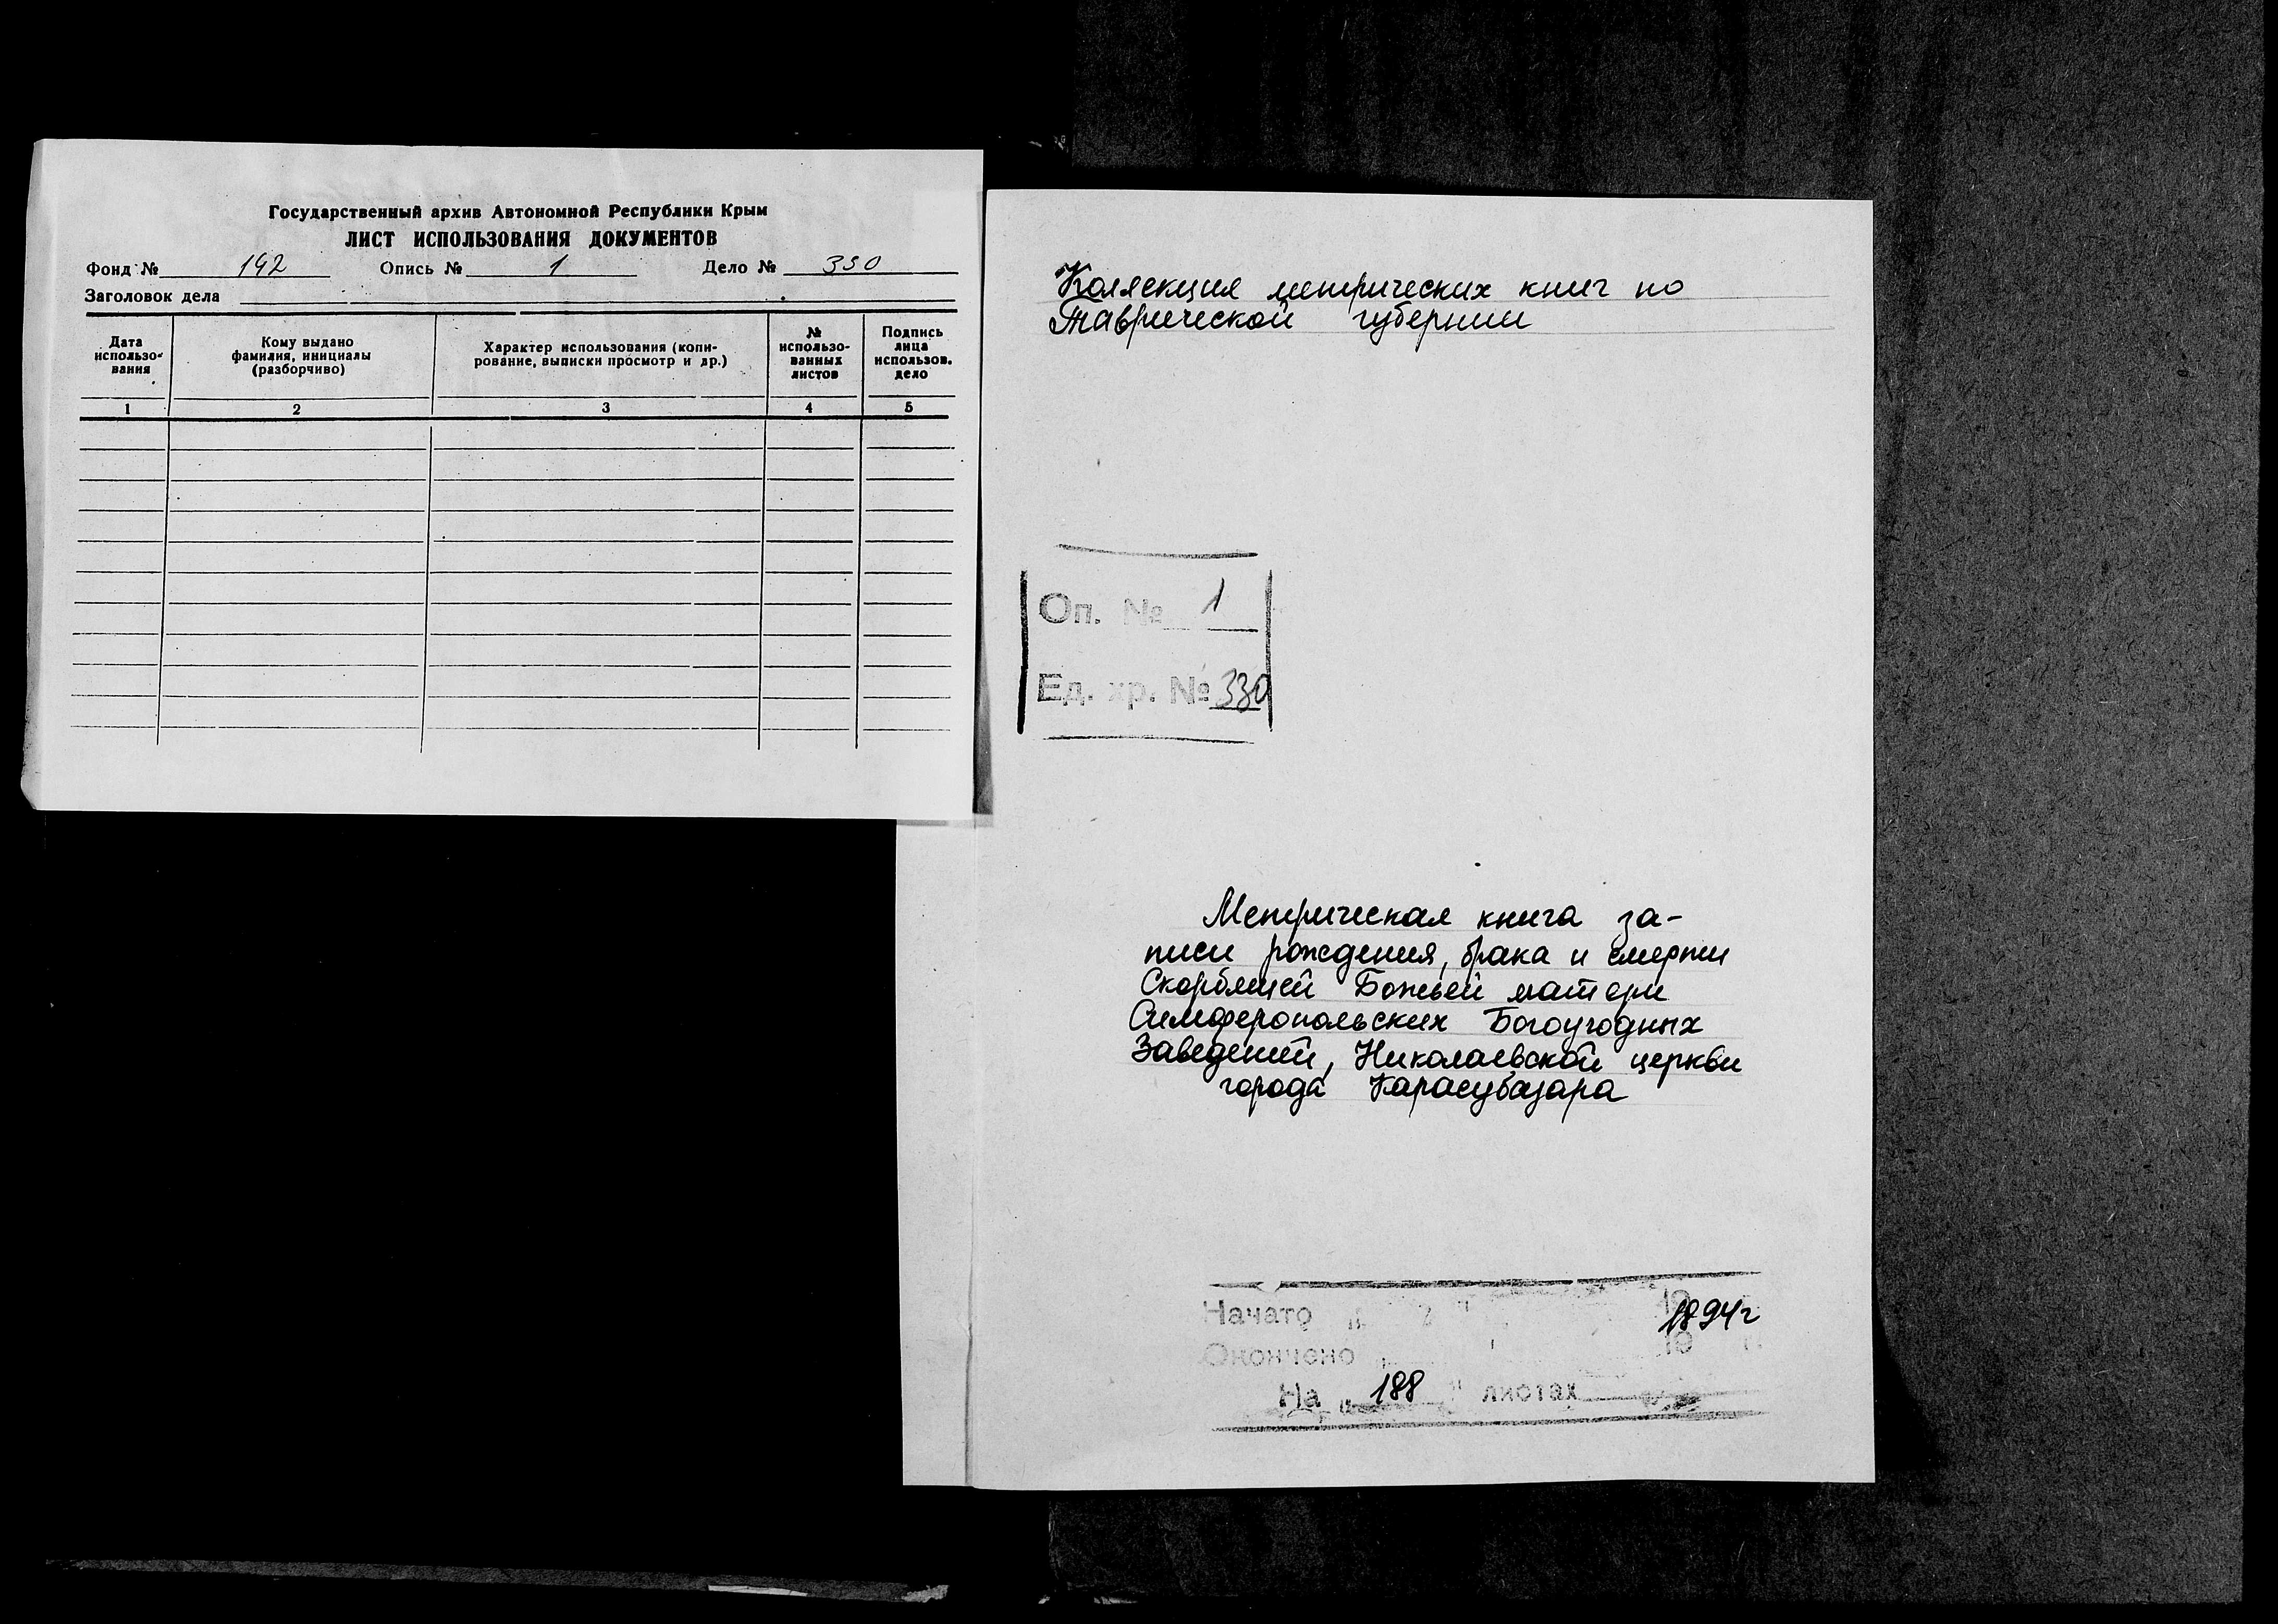 Государственный архив Автономной Республики Крым
ЛИСТ ИСПОЛЬЗОВАНИЯ ДОКУМЕНТОВ
Фонд № 142 Опись № 1 Дело № 330
Заголовок дела
Дата использо-вания
Кому выдано фамилия, инициалы (разборчиво)
Характер использования (копи-рование, выписки просмотр и др.)
№ использо-ванных листов
Подпись лица использов. дело
1 2 3 4 5
Коллекция метрических книг по
Таврической губернии
Оп. № 1
Ед. хр. № 330
Метрическая книга за-
писи рождения, брака и смерти
Скорбящей Божьей матери
Симферопольских Богоугодных
Заведений, Николаевской церкви
города Карасубазара
Начато 1894г
Окончено 19 г.
На 188 листах